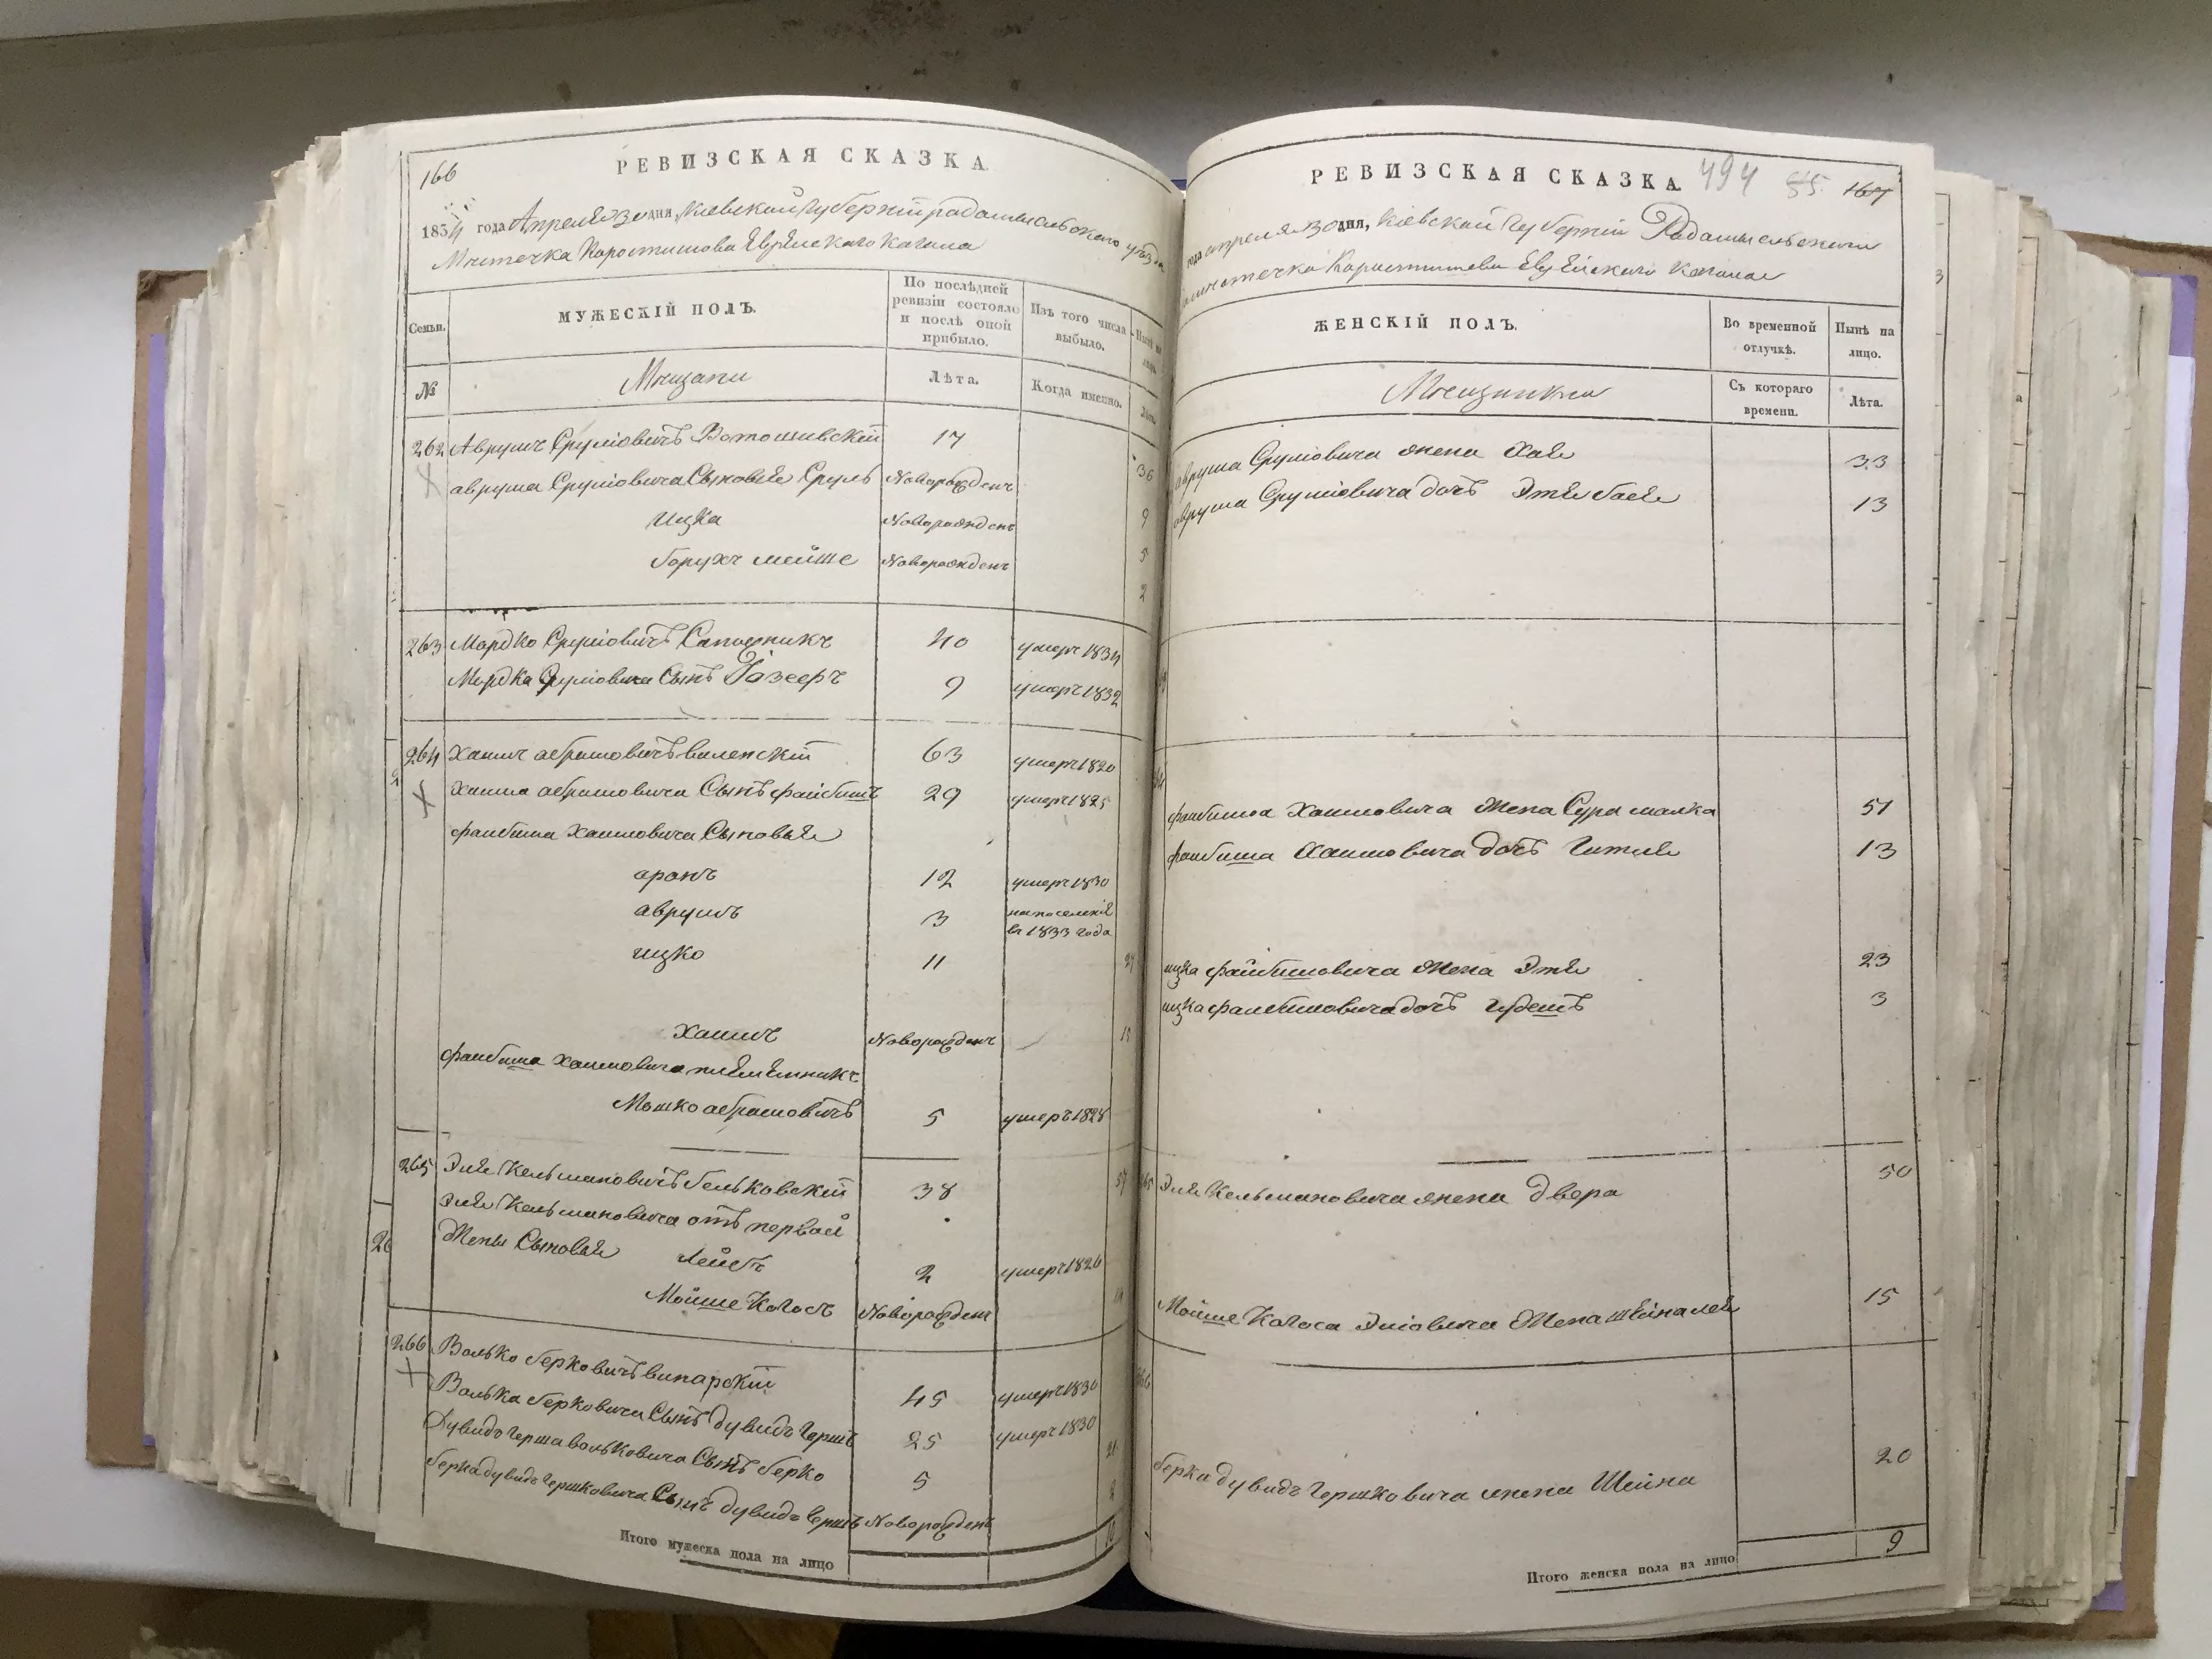 166
РЕВИЗСКАЯ СКАЗКА.
1834 года Апреля 30 дня, Киевской Губернии Радомысльского уезда
Местечка Коростишова Еврейского Кагала
Семьи. МУЖЕСКІЙ ПОЛЪ. По послѣдней ревизіи состояло и послѣ оной прибыло. Изъ того числа выбыло.
№ Мещане Лѣта. Когда именно. Лѣта.
262 Аврумъ Сруліовичъ 17 36
Аврума Сруліовича Сыновья Сруль Новорожденъ 9
Ицка Новорожденъ 5
Борухъ Мейше Новорожденъ 2
263 Мордко Сруліовичъ Сапожникъ 40 умеръ 1834
Мордка Сруліовича Сынъ 9 умеръ 1832
264 Хаимъ Абрамовичъ Виленскій 63 умеръ 1820
Хаима Абрамовича Сынъ Файбишъ 29 умеръ 1825
Файбиша Хаимовича Сыновья
Аронъ 12 умеръ 1830
Аврумъ 3 на поселеніе въ 1833 года
Ицко 11 27
Хаимъ Новорожденъ
Файбиша Хаимовича племянникъ
Мошко Абрамовичъ 5 умеръ 1828
265 Эля Кельмановичъ Бельковскій 38 54
Эли Кельмановича отъ первой
Жены Сыновья Лейбъ 2 умеръ 1826
Мойше Колосъ Новорожденъ
266 Волько Берковичъ Винарскій 45 умеръ 1830
Волька Берковича Сынъ Дувидъ Гершъ 25 умеръ 1830
Дувидъ Герша Вольковича Сынъ Берко 5 21
Берка Дувидъ Гершковича Сынъ Дувидъ Гершъ Новорожденъ
Итого мужеска пола на лицо
РЕВИЗСКАЯ СКАЗКА. 494 85. 167
года апреля 30 дня, Кіевской Губерніи Радомысльского
местечка Коростишева Еврейского Кагала
ЖЕНСКІЙ ПОЛЪ. Во временной отлучкѣ. Нынѣ на лицо.
Мещанки Съ котораго времени. Лѣта.
Аврума Сруліовича жена Хая 33
Аврума Сруліовича дочь Этя Бася 13
Файбиша Хаимовича Жена Сура Малка 51
Файбиша Хаимовича дочь Гитля 13
Ицка Файбишовича жена Этя 23
Ицка Файбишовича дочь 3
Эли Кельмановича жена Двера 50
Мойше Колоса Эліовича Жена 15
Берка Дувидъ Гершковича жена Шейна 20
Итого женска пола на лицо 9